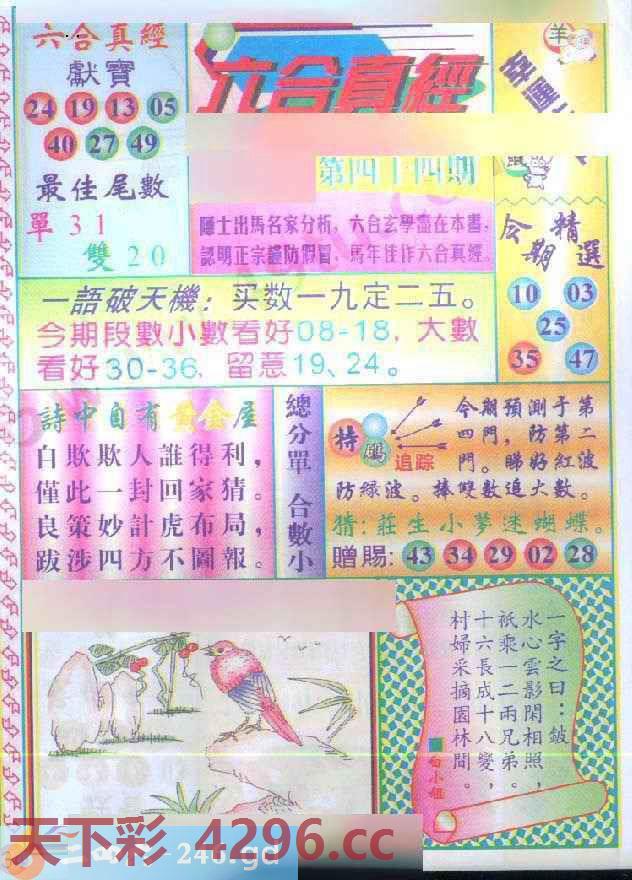 六合真經
獻寶
24 19 13 05
40 27 49
最佳尾數
單 3 1
雙 2 0
六合真經
第四十四期
隱士出馬名家分析，六合玄學盡在本書，
認明正宗謹防假冒，馬年佳作六合真經。
羊
今期精選
10 03
25
35 47
一語破天機：买数一九定二五。
今期段數小數看好08-18，大數
看好30-36，留意19、24。
詩中自有黃金屋
自欺欺人誰得利，
僅此一封回家猜。
良策妙計虎布局，
跋涉四方不圖報。
總分單 合數小
特碼
追踪
今期預測于第
四門，防第二
門。睇好紅波
防綠波。捧雙數追大數。
猜：莊生小夢迷蝴蝶。
贈賜：43 34 29 02 28
一字之曰：鈸
水心雲影閑相照，
祇乘一二兩兄弟。
十六長成十八變，
村婦采摘園林間。
白小姐
天下彩 4296.cc
246.gd